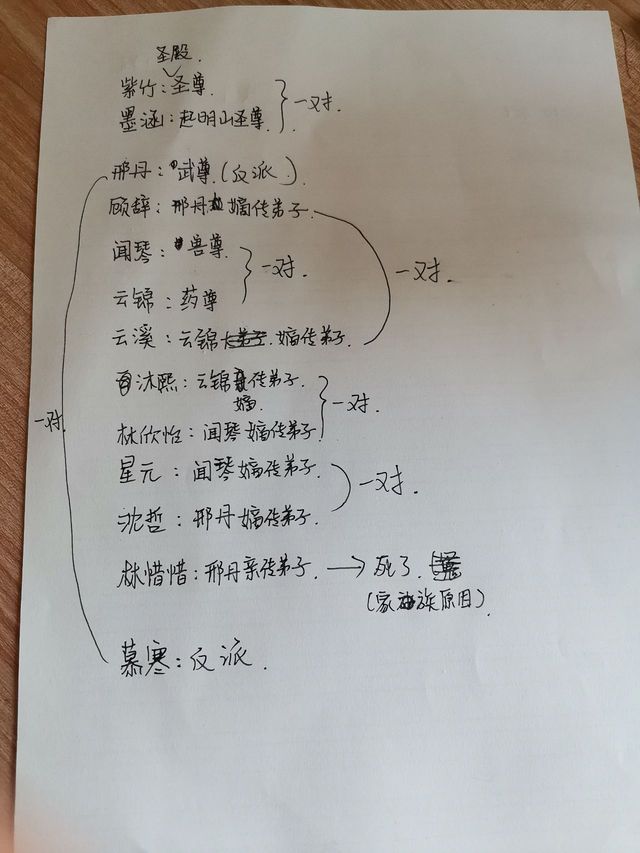 圣殿.
紫竹:圣尊.
墨涵:赵明山圣尊.
一对.
邢丹:武尊.(反派).
顾辞:邢丹嫡传弟子
闻琴:兽尊.
一对.
一对.
云锦:药尊
云溪:云锦 嫡传弟子.
沐熙:云锦传弟子.
嫡.
一对.
一对
林欣怡:闻琴嫡传弟子
星元:闻琴嫡传弟子.
一对.
沈哲:邢丹嫡传弟子.
林惜惜:邢丹亲传弟子. → 死了.
(家族原因).
慕寒:反派.